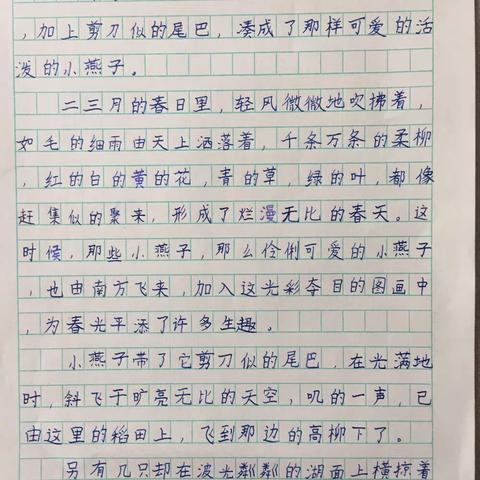 ，加上剪刀似的尾巴，凑成了那样可爱的活
泼的小燕子。
二三月的春日里，轻风微微地吹拂着，
如毛的细雨由天上洒落着，千条万条的柔柳
，红的白的黄的花，青的草，绿的叶，都像
赶集似的聚来，形成了烂漫无比的春天。这
时候，那些小燕子，那么伶俐可爱的小燕子
，也由南方飞来，加入这光彩夺目的图画中
，为春光平添了许多生趣。
小燕子带了它剪刀似的尾巴，在光满地
时，斜飞于旷亮无比的天空，叽的一声，已
由这里的稻田上，飞到那边的高柳下了。
另有几只却在波光粼粼的湖面上横掠着